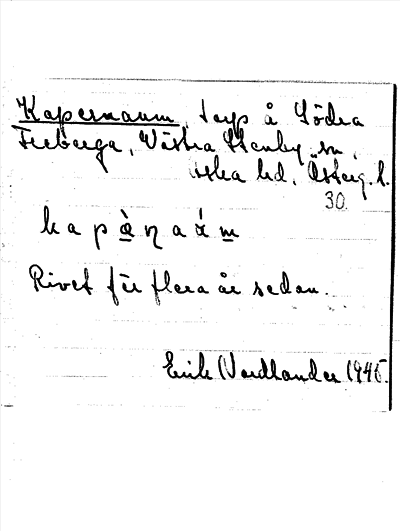 Kapernaum, torp å Södra
Freberga, Västra Stenby sn,
Aska hd, Österg. l.
30
k a p à̲ ŋ a á m̲
Rivet för flera år sedan.
Erik Nordlander 1945.